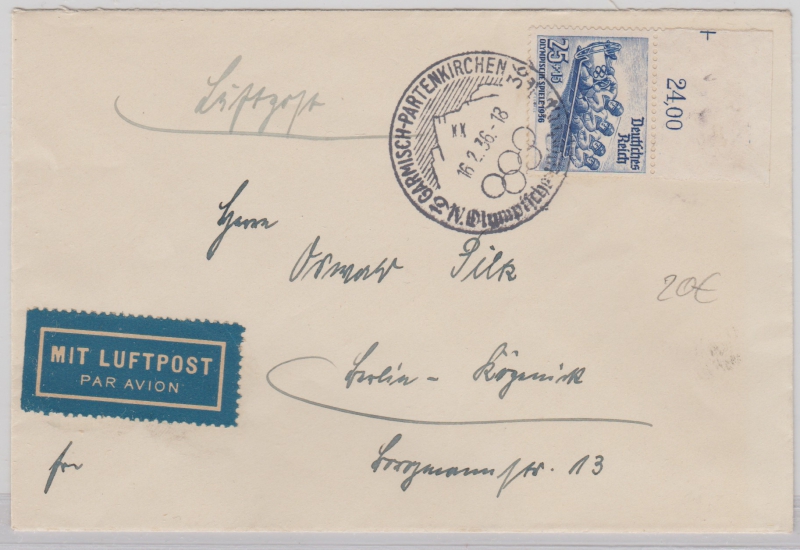 Luftpost
GARMISCH-PARTENKIRCHEN
XX
16.2.36.-18
IV. Olympische
25+15
OLYMPISCHE SPIELE 1936
Deutsches
Reich
24,00
Herrn
Oswald Pilk
20€
MIT LUFTPOST
PAR AVION
Berlin - Köpenick
Borgmannstr. 13